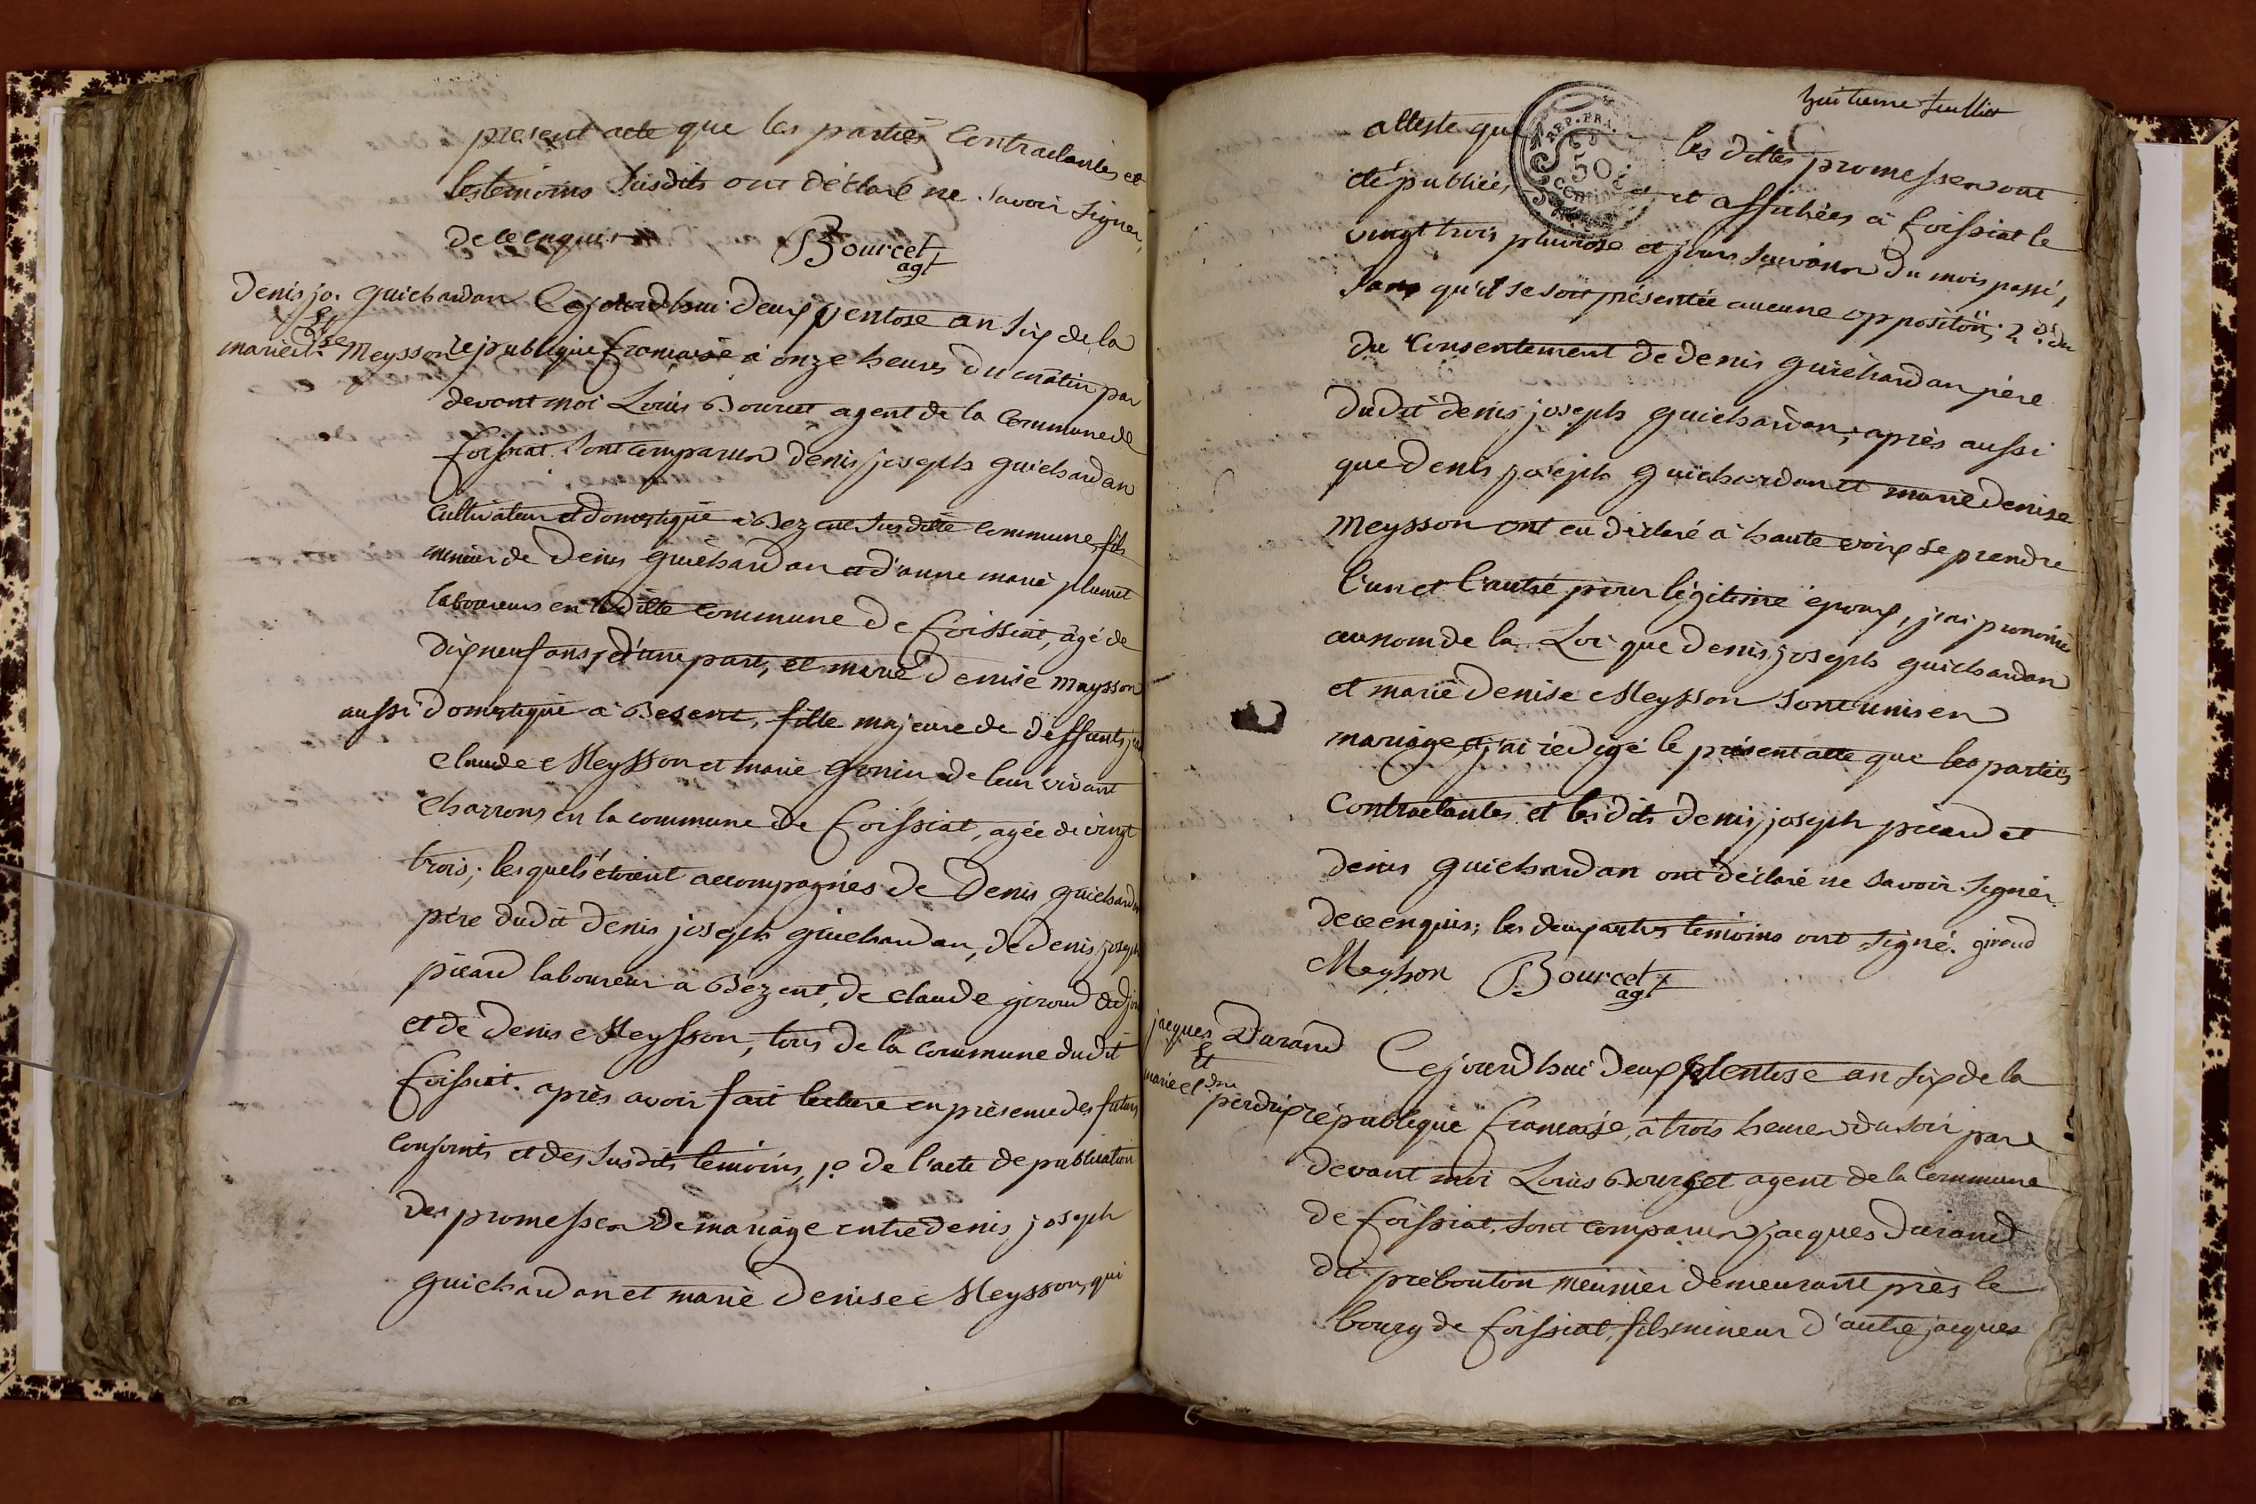 present acte que les parties Contractantes et
les temoins susdits ont déclaré ne savoir signer,
de ce enquis
Bourcet
agt
Denis jo. guichardan
&
marie d.se Meysson
Cejourdhui deux ventose an six de la
republique francaise à onze heures du matin par
devant moi Louis Bourcet agent de la Commune de
foissiat. Sont comparus denis joseph guichardan
cultivateur et domestique à Bezent susditte commune, fils
mineur de denis guichardan et d'anne marie plumet
laboureurs en laditte commune de foissiat, âgé de
dix neuf ans, d'une part, et marie denise maysson
aussi domestique à Besent, fille majeure de deffunts
claude Meysson et marie gonin de leur vivant
charrons en la commune de foissiat, agée de vingt
trois; lesquels étoient accompagnés de Denis guichardan
père dudit denis joseph guichardan, de denis joseph
picard laboureur a Bezent, de claude giroud
et de denis Meysson, tous de la commune dudit
foissiat. après avoir fait lecture en présence des futurs
conjoints et des susdits temoins, 1.o de l'acte de publication
des promesses de mariage entre denis joseph
guichardan et marie denise Meysson, qui
huitieme feuillet
REP. FRA.
50
CENTIMES
atteste que les dittes promesses ont
été publiées et affichées à foissiat le
vingt trois pluviose et jours suivans du mois passé,
sans qu'il se soit présentée aucune opposition; 2.o du
du consentement de denis guichardan père
dudit denis joseph guichardan; après aussi
que denis joseph guichardan et marie denise
Meysson ont eu déclaré à haute voix se prendre
l'un et l'autre pour légitime epoux, j'ai prononcé
au nom de la Loi que denis joseph guichardan
et marie denise Meysson sont unis en
mariage et j'ai rédigé le présent acte que les parties
contractantes et lesdits denis joseph picard et
denis guichardan ont déclaré ne savoir signer
de ce enquis; les deux autres temoins ont signé. giroud
Meysson Bourcet
agt
jacques Durand
&
marie perdrix
Cejourdhui deux ventose an six de la
république francaise, à trois heures du soir par
devant moi Louis Bourcet agent de la Commune
de foissiat, sont comparus jacques durand
dit prébouton meunier demeurant près le
bourg de foissiat, fils mineur d'autre jacques